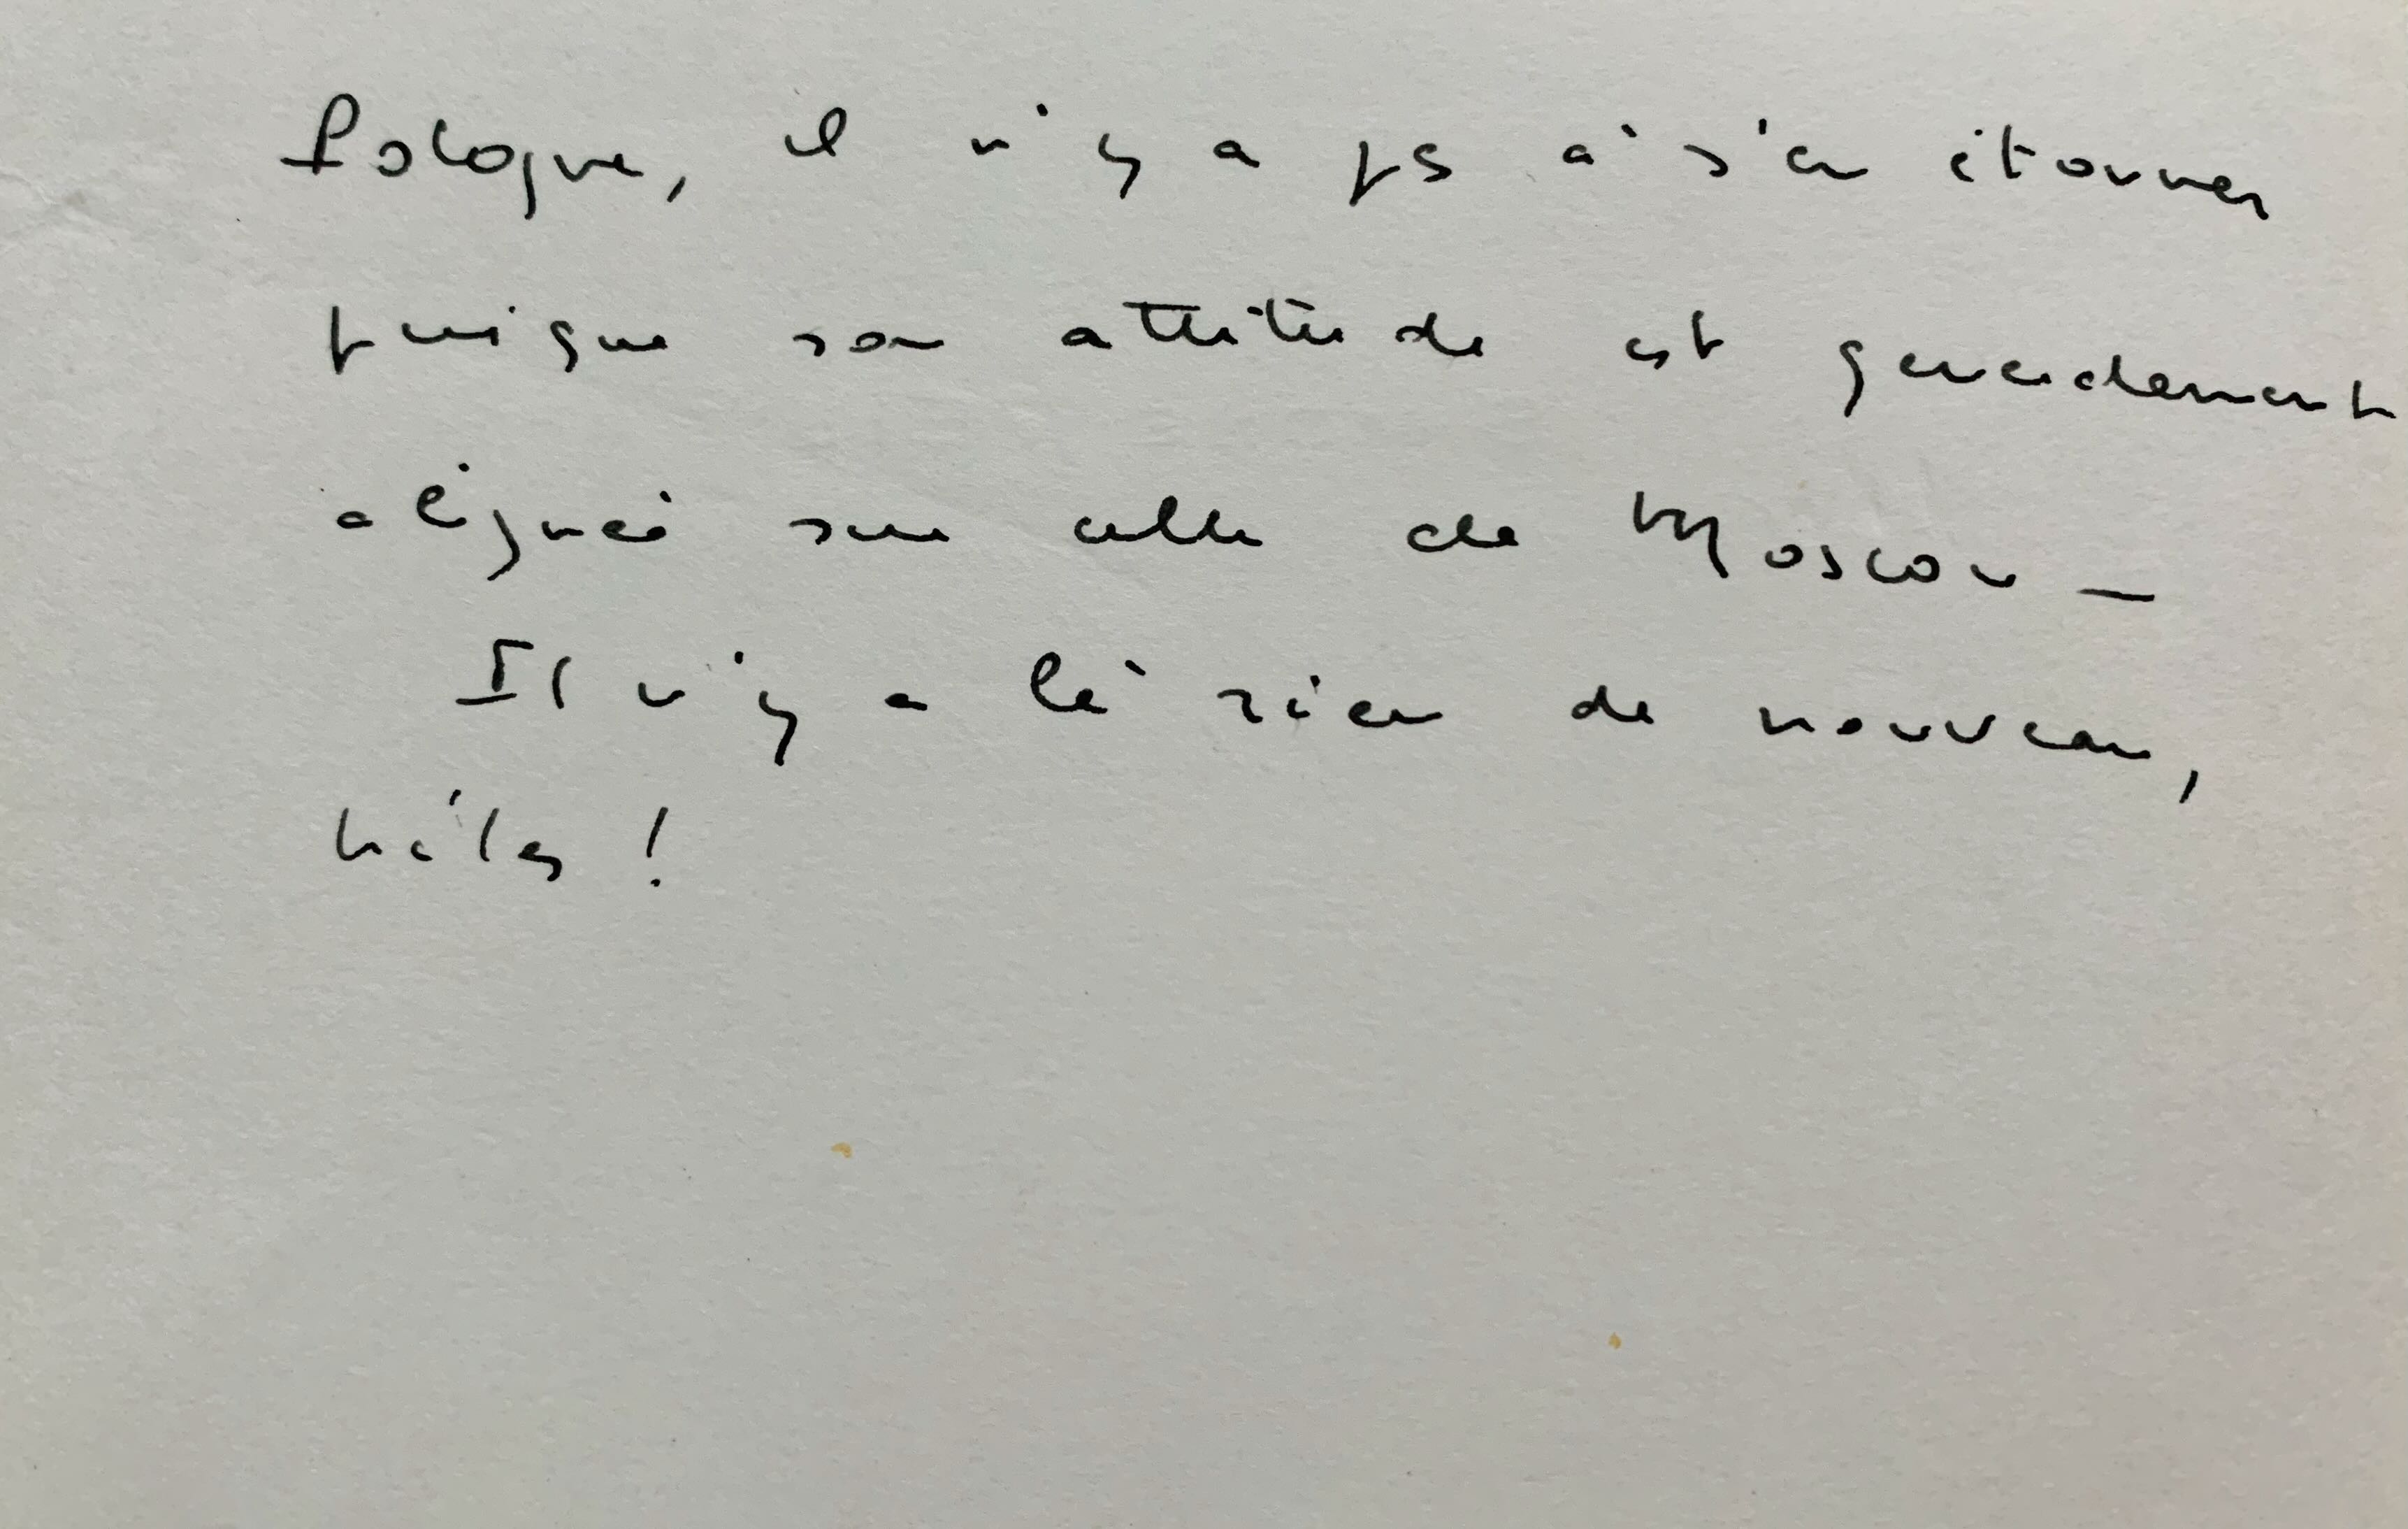 Pologne, il n'y a pas à s'en étonner
puisque son attitude est généralement
alignée sur celle de Moscou –
Il n'y a là rien de nouveau,
hélas !